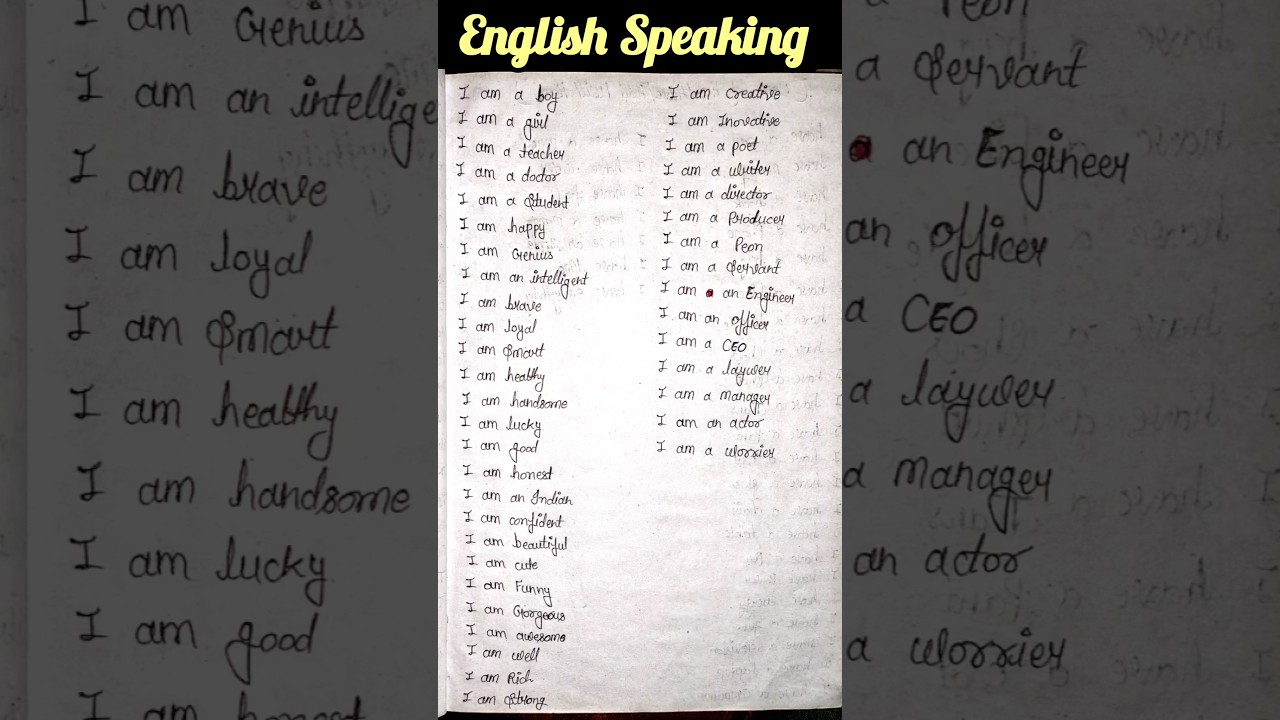 English Speaking
I am a boy
I am a girl
I am a teacher
I am a doctor
I am a Student
I am happy
I am Genius
I am an intelligent
I am brave
I am loyal
I am Smart
I am healthy
I am handsome
I am lucky
I am good
I am honest
I am an Indian
I am confident
I am beautiful
I am cute
I am Funny
I am Gorgeous
I am awesome
I am well
I am Rich
I am Strong
I am creative
I am Inovative
I am a poet
I am a writer
I am a director
I am a Producer
I am a Peon
I am a Servant
I am an Engineer
I am an officer
I am a CEO
I am a laywer
I am a manager
I am an actor
I am a worrier